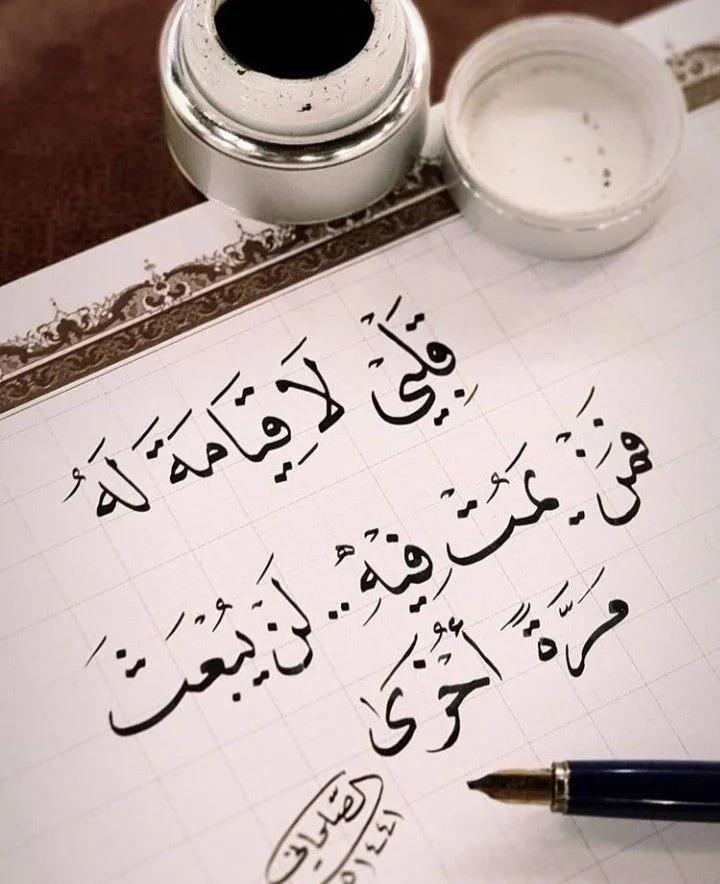 قَلْبِي لَا قِيَامَةَ لَهُ
فَمَنْ يَمُتْ فِيْهِ.. لَنْ يُبْعَثَ
مَرَّةً أُخْرَى
الصلحاني
١٤٤١ه